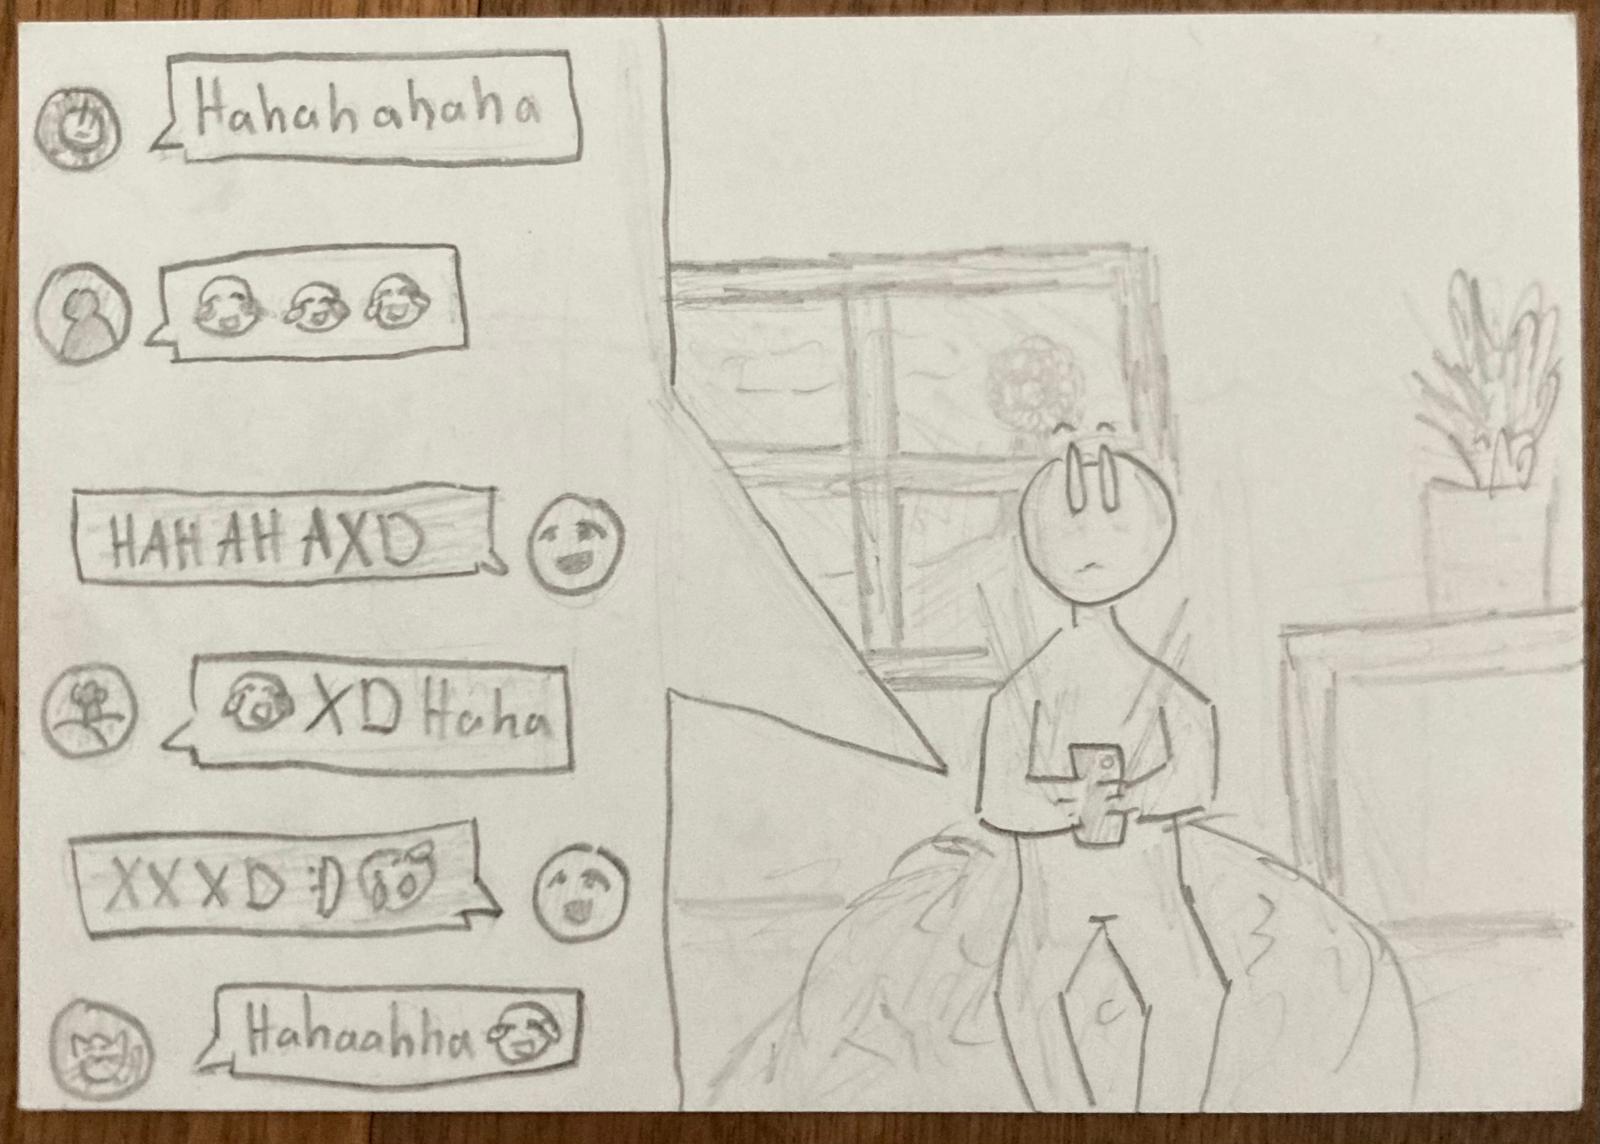 Hahahahaha
😂 😂 😂
HAHAHAXD
😂 XD Haha
XXXD :D 😂
Hahaahha 😂